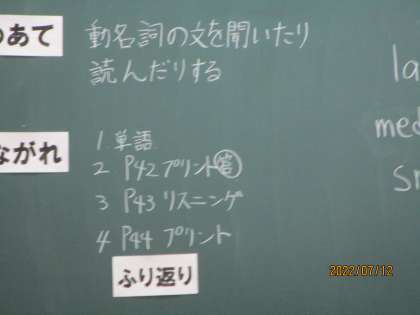 のあて
動名詞の文を聞いたり
読んだりする
ながれ
1. 単語
2 P42 プリント答
3 P43 リスニング
4 P44 プリント
ふり返り
la
med
sm
2022/07/12